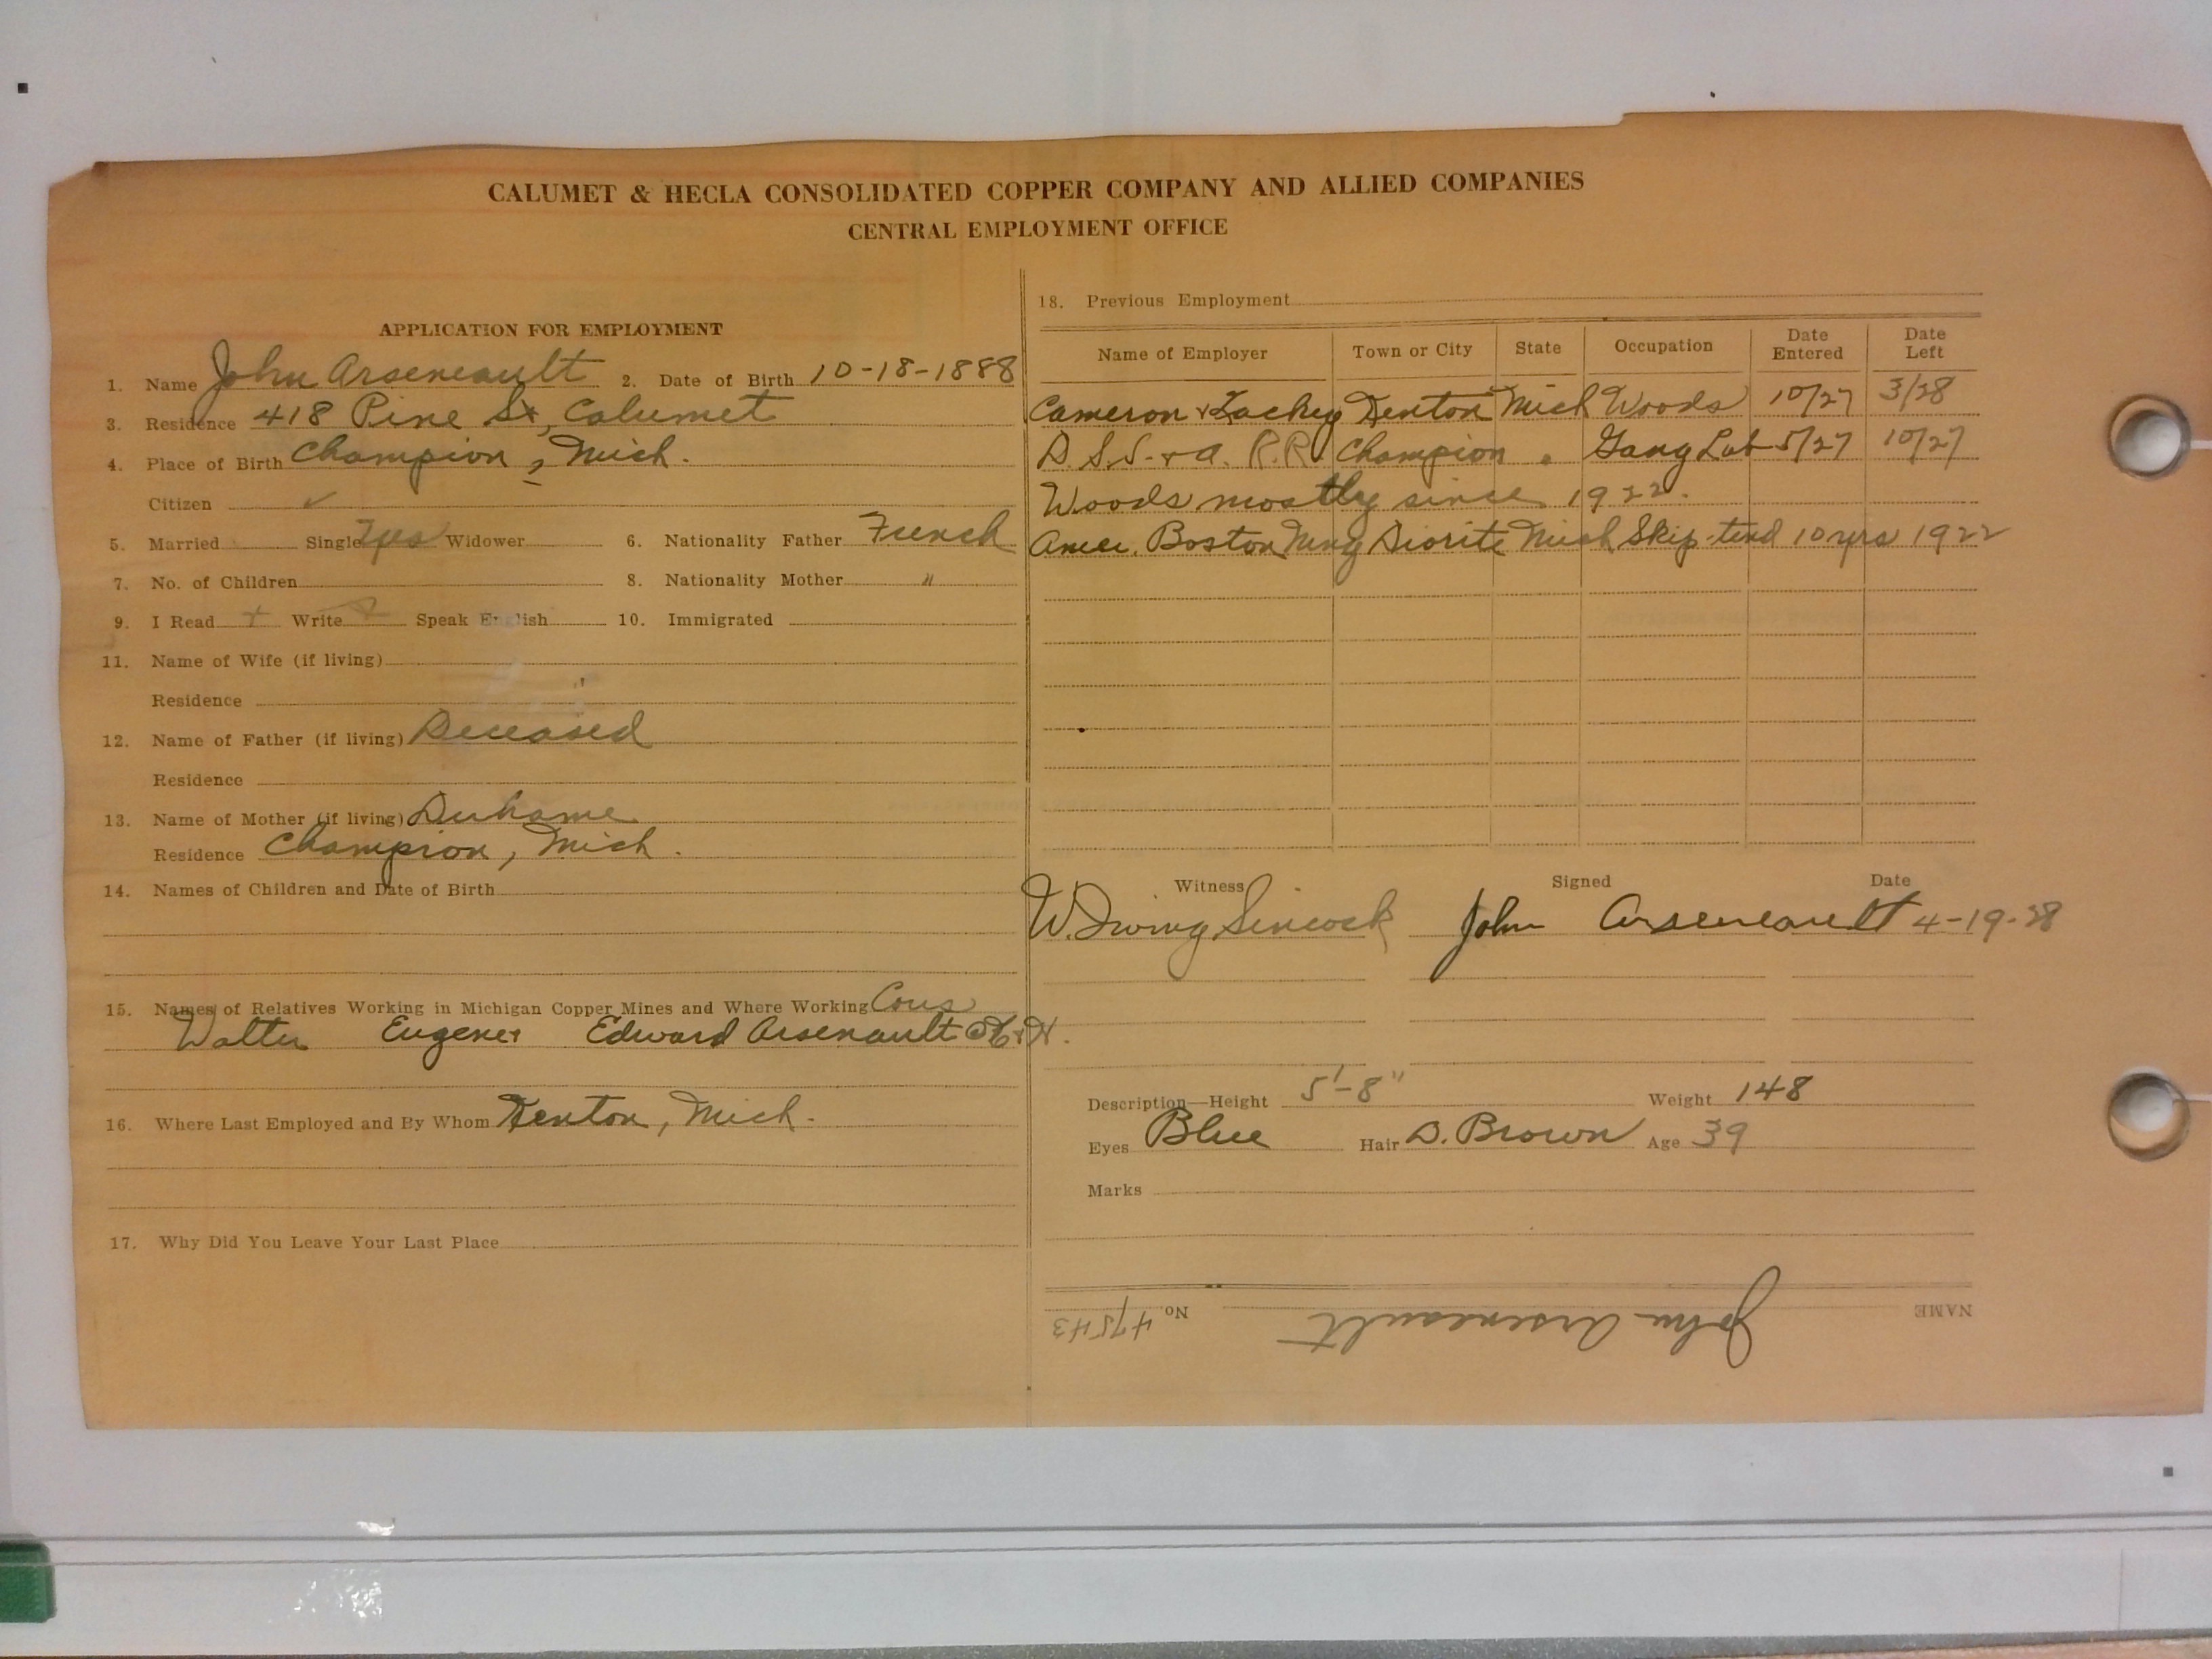 CALUMET & HECLA CONSOLIDATED COPPER COMPANY AND ALLIED COMPANIES
CENTRAL EMPLOYMENT OFFICE
APPLICATION FOR EMPLOYMENT
1. Name John Arseneault 2. Date of Birth 10-18-1888
3. Residence 418 Pine St, Calumet
4. Place of Birth Champion, Mich.
Citizen ✓
5. Married Single Yes Widower 6. Nationality Father French
7. No. of Children 8. Nationality Mother "
9. I Read + Write + Speak English 10. Immigrated
11. Name of Wife (if living)
Residence
12. Name of Father (if living) Deceased
Residence
13. Name of Mother (if living) Duhame
Residence Champion, Mich.
14. Names of Children and Date of Birth
15. Names of Relatives Working in Michigan Copper Mines and Where Working Cous
Walter Eugene + Edward Arsenault C+H.
16. Where Last Employed and By Whom Kenton, Mich.
17. Why Did You Leave Your Last Place
18. Previous Employment
Name of Employer Town or City State Occupation Date Entered Date Left
Cameron + Kenton Mich Woods 10/27 3/28
D.S.S. + A. R.R. Champion " Gang Lab 5/27 10/27
Woods mostly since 1922.
Amer. Boston Mng Diorite Mich Skip-tend 10 yrs 1922
Witness Signed Date
W. Irving Sincock John Arseneault 4-19-28
Description—Height 5'-8" Weight 148
Eyes Blue Hair D. Brown Age 39
Marks
NAME John Arseneault No. 47543